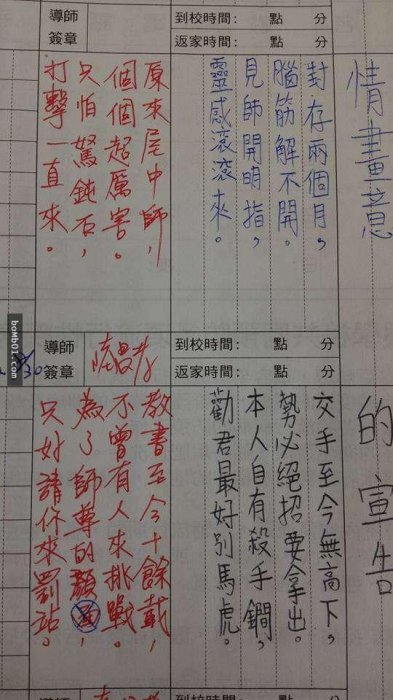 導師
簽章
到校時間： 點 分
返家時間： 點 分
情畫意
對存兩個月，
腦筋解不開。
見師開明指，
靈感滾滾來。
原來尾中師，
個個超厲害。
只怕駑鈍石，
打擊一直來。
導師
簽章
到校時間： 點 分
返家時間： 點 分
的宣告
交手至今無高下，
勢必絕招要拿出。
本人自有殺手鐧，
勸君最好別馬虎。
教書至今十餘載，
不曾有人來挑戰。
為了師尊的顏，
只好請你來罰站。
bomb01.com